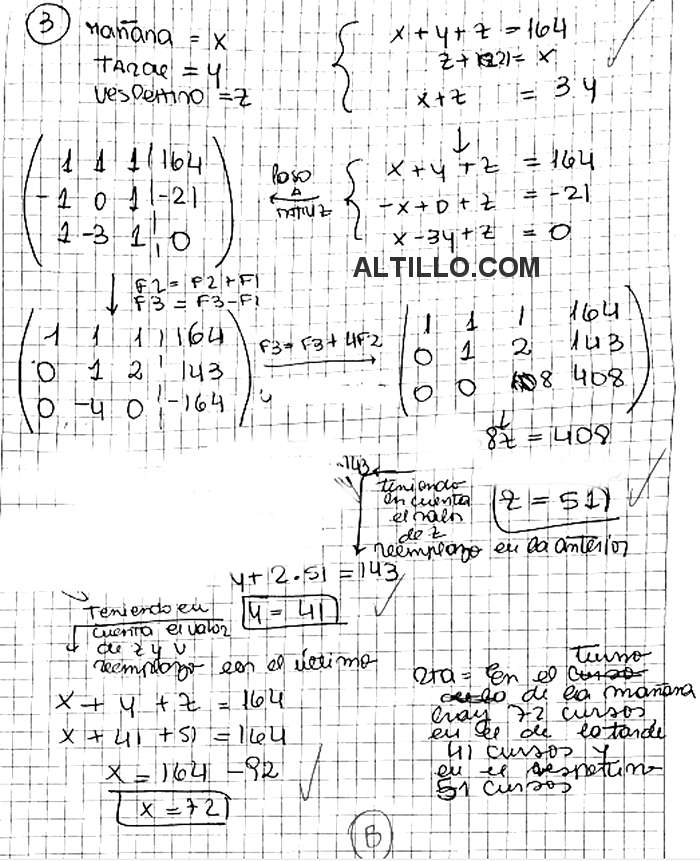 3
mañana = x
Tarde = y
Vespertino = z
x + y + z = 164
z + 21 = x
x + z = 3y
x + y + z = 164
-x + 0 + z = -21
x - 3y + z = 0
Paso a
matriz
1 1 1 | 164
-1 0 1 | -21
1 -3 1 | 0
ALTILLO.COM
F2 = F2 + F1
F3 = F3 - F1
1 1 1 | 164
0 1 2 | 143
0 -4 0 | -164
F3 = F3 + 4F2
1 1 1 164
0 1 2 143
0 0 8 408
8z = 408
z = 51
143
teniendo
en cuenta
el valor
de z
reemplazo en la anterior
y + 2.51 = 143
y = 41
Teniendo en
cuenta el valor
de z y y
reemplazo en el último
x + y + z = 164
x + 41 + 51 = 164
x = 164 - 92
x = 72
turno
Rta = En el curso
de la mañana
hay 72 cursos
en el de la tarde
41 cursos y
en el vespertino
51 cursos
B